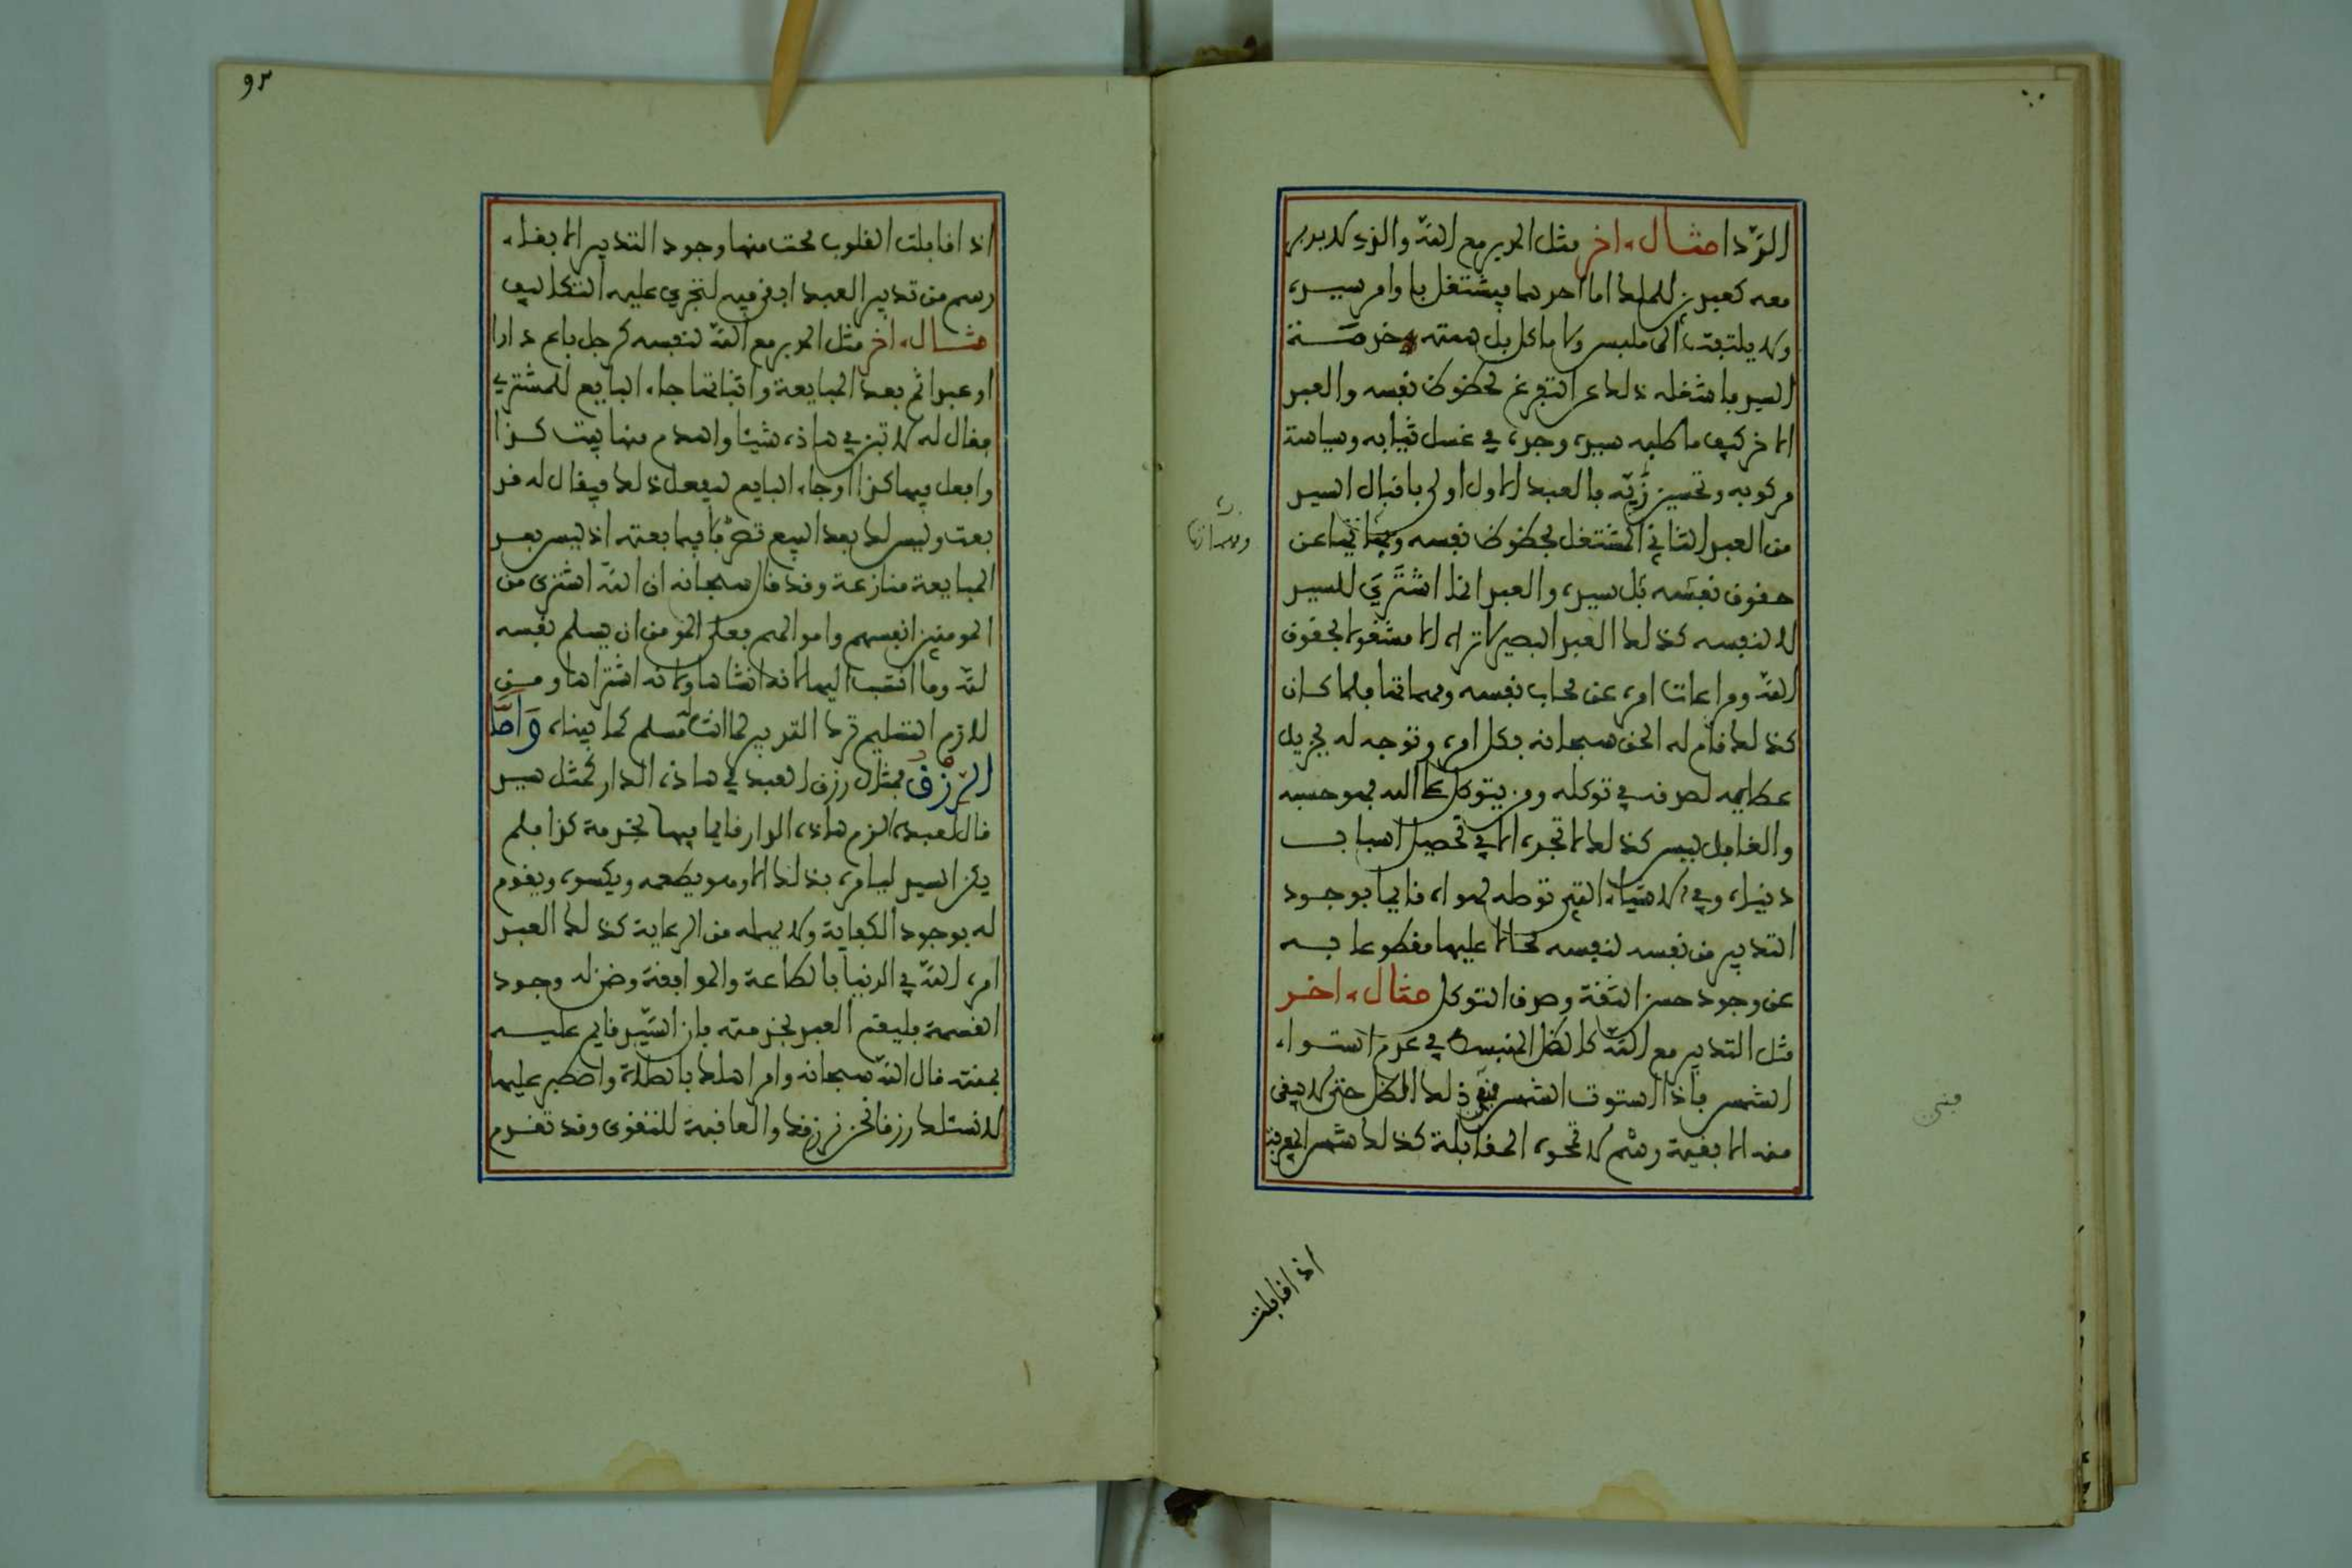 الردا مثال ءاخر مثل المدبر مع الله والذي لا يدبر
معه كعبدين للملك اما احدهما فيشتغل باوامر سيده
ولا يلتفت الى ملبس ولا ماكل بل همته خدمــة
السيد فاشغله ذلك عن التفرغ لحظوظ نفسه والعبد
الاخر كيف ما طلبه سيده وجده في غسل ثيابه وسياسة
مركوبه وتحسين زيه فالعبد الاول اولى باقبال السيد
من العبد الثاني المشتغل بحظوظ نفسه ومهماتها عن
حقوق نفسه بل سيده والعبد انما اشتري للسيد
لا لنفسه كذلك العبد البصير لا تراه الا مشغولا بحقوق
الله ومراعات امره عن محاب نفسه ومهماتها فلما كـان
كذلك قام له الحق سبحانه بكل امره وتوجه له بجزيل
عطايه لصدقه في توكله ومن يتوكل على الله فهو حسبه
والغافل ليس كذلك لا تجده الا في تحصيل اسبابــ
دنياه وفي الاشياء التي توصله لهواه قايما بوجـود
التدبير من نفسه لنفسه محالا عليها مقطوعا بــه
عن وجود حسن الثقة وصدق التوكل مثال ءاخـر
مثل التدبير مع الله كالظل المنبسط في عدم استــواء
الشمس فاذا استوت الشمس فني ذلك الظل حتى لا يبقى
منه الا بقية رسم لا تمحوه المقابلة كذلك شمس المعرفة
ومهماتها
فني
اذا قابلت
٩٢
اذا قابلت القلوب محت منها وجود التدبير الا بقاء
رسم من تدبير العبد ابقي فيه لتجري عليه التكاليف
مثــال ءاخر مثل المدبر مع الله لنفسه كرجل باع دارا
او عبدا ثم بعد المبايعة واثباتها جاء البايع للمشتري
فقال له لا تبن في هاذه شيئا واهدم منها بيت كــذا
وافعل فيها كذا او جاء البايع ليفعل ذلك فيقال له قد
بعت وليس لك بعد البيع تصرف فيما بعته اذ ليس بعـد
المبايعة منازعة وقد قال سبحانه ان الله اشترى من
المومنين انفسهم واموالهم فعلى المومن ان يسلم نفسه
لله وما انتسب اليها لانه انشاها ولانه اشتراها ومــن
لازم التسليم ترك التدبير لما انت مسلم كما بيناه وامّا
الرزق فمثال رزق العبد في هاذه الدار كمثل سيد
قال لعبده الزم هاذه الدار قايما فيها بخدمة كذا فلم
يكن السيد ليامره بذلك الا وهو يطعمه ويكسوه ويقوم
له بوجود الكفاية ولا يهمله من الرعاية كذلك العبد
امره الله في الدنيا بالطاعة والموافقة وضمن له وجـود
القسمة فليقم العبد بخدمته فان السيد قايم عليــه
بمنته قال الله سبحانه وامر اهلك بالصلاة واصطبر عليها
لا نسئلك رزقا نحن نرزقك والعاقبة للتقوى وقد تقـدم